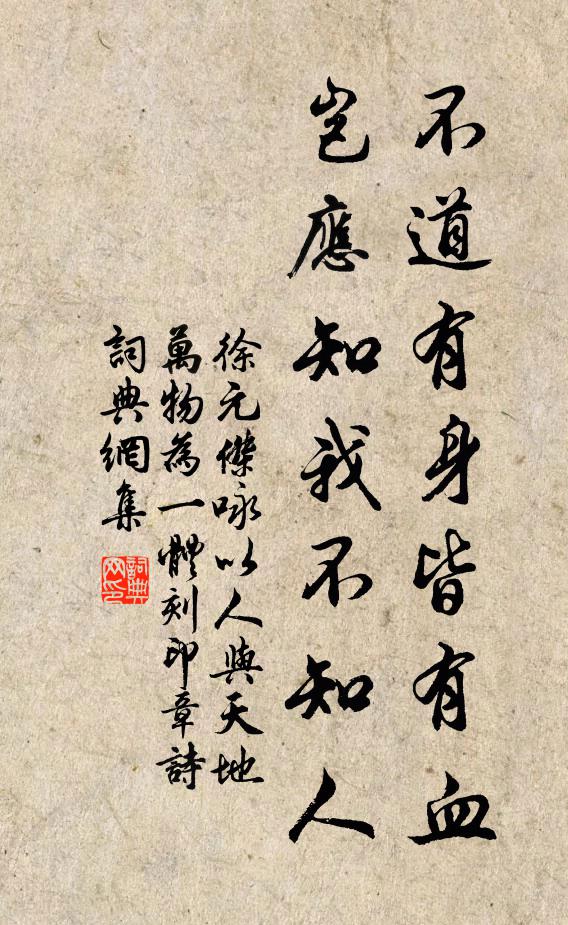 不道有身皆有血
豈應知我不知人
徐元傑咏以人與天地
萬物為一體刻印章詩
詞典網集
詞典
网印